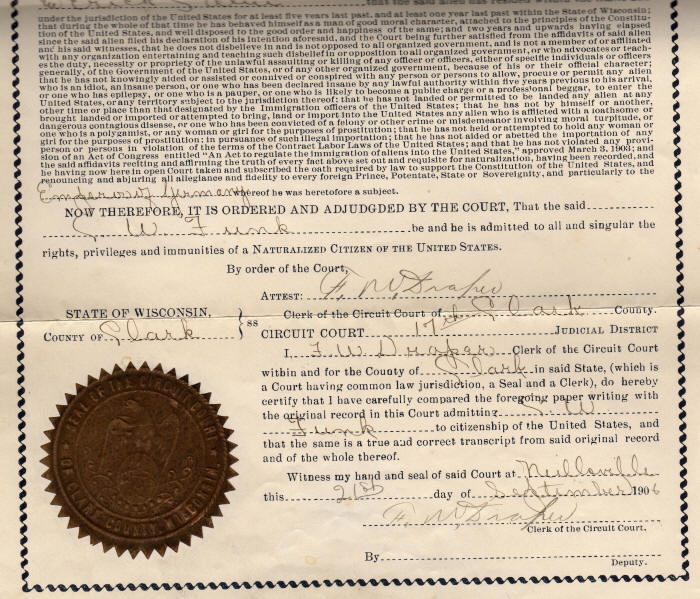 under the jurisdiction of the United States for at least five years last past, and at least one year last past within the State of Wisconsin;
that during the whole of that time he has behaved himself as a man of good moral character, attached to the principles of the Constitu-
tion of the United States, and well disposed to the good order and happiness of the same; and two years and upwards having elapsed
since the said alien filed his declaration of his intention aforesaid, and the Court being further satisfied from the affidavits of said alien
and his said witnesses, that he does not disbelieve in and is not opposed to all organized government, and is not a member of or affiliated
with any organization entertaining and teaching such disbelief in or opposition to all organized government, or who advocates or teach-
es the duty, necessity or propriety of the unlawful assaulting or killing of any officer or officers, either of specific individuals or officers
generally, of the Government of the United States, or of any other organized government, because of his or their official character;
that he has not knowingly aided or assisted or connived or conspired with any person or persons to allow, procure or permit any alien
who is an idiot, an insane person, or one who has been declared insane by any lawful authority within five years previous to his arrival,
or one who has epilepsy, or one who is a pauper, or one who is likely to become a public charge or a professional beggar, to enter the
United States, or any territory subject to the jurisdiction thereof; that he has not landed or permitted to be landed any alien at any
other time or place than that designated by the Immigration officers of the United States; that he has not by himself or another,
brought landed or imported or attempted to bring, land or import into the United States any alien who is afflicted with a loathsome or
dangerous contagious disease, or one who has been convicted of a felony or other crime or misdemeanor involving moral turpitude, or
one who is a polygamist, or any woman or girl for the purposes of prostitution; that he has not held or attempted to hold any woman or
girl for the purposes of prostitution; in pursuance of such illegal importation; that he has not aided or abetted the importation of any
person or persons in violation of the terms of the Contract Labor Laws of the United States; and that he has not violated any provi-
sion of an Act of Congress entitled "An Act to regulate the immigration of aliens into the United States," approved March 3, 1903; and
the said affidavits reciting and affirming the truth of every fact above set out and requisite for naturalization, having been recorded, and
he having now here in open Court taken and subscribed the oath required by law to support the Constitution of the United States, and
renouncing and abjuring all allegiance and fidelity to every foreign Prince, Potentate, State or Sovereignty, and particularly to the
Emperor of Germany whereof he was heretofore a subject.
NOW THEREFORE, IT IS ORDERED AND ADJUDGDED BY THE COURT, That the said
W Funk be and he is admitted to all and singular the
rights, privileges and immunities of a NATURALIZED CITIZEN OF THE UNITED STATES.
By order of the Court,
ATTEST: F. W. Draper
STATE OF WISCONSIN,
COUNTY OF Clark } ss
Clerk of the Circuit Court of Clark County.
CIRCUIT COURT 17th JUDICIAL DISTRICT
I, F W Draper Clerk of the Circuit Court
within and for the County of Clark in said State, (which is
a Court having common law jurisdiction, a Seal and a Clerk), do hereby
certify that I have carefully compared the foregoing paper writing with
the original record in this Court admitting W
Funk to citizenship of the United States, and
that the same is a true and correct transcript from said original record
and of the whole thereof.
Witness my hand and seal of said Court at Neillsville
this 21st day of September 1906
F. W. Draper
Clerk of the Circuit Court,
By
Deputy.
SEAL OF THE CIRCUIT COURT
OF CLARK COUNTY, WISCONSIN